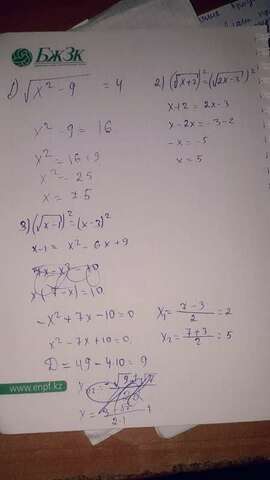 БЖЗҚ
1) √x² - 9 = 4
x² - 9 = 16
x² = 16+9
x² = 25
x = 75
2) (√x+2)² = (√2x-3)²
x+2 = 2x-3
x-2x = -3-2
-x = -5
x = 5
3) (√x-1)² = (x-3)²
x-1 = x² - 6x+9
x(7-x) = 10
-x² + 7x - 10 = 0
x² - 7x + 10 = 0
D = 49 - 4·10 = 9
x₁ = 7-3/2 = 2
x₂ = 7+3/2 = 5
www.enpf.kz